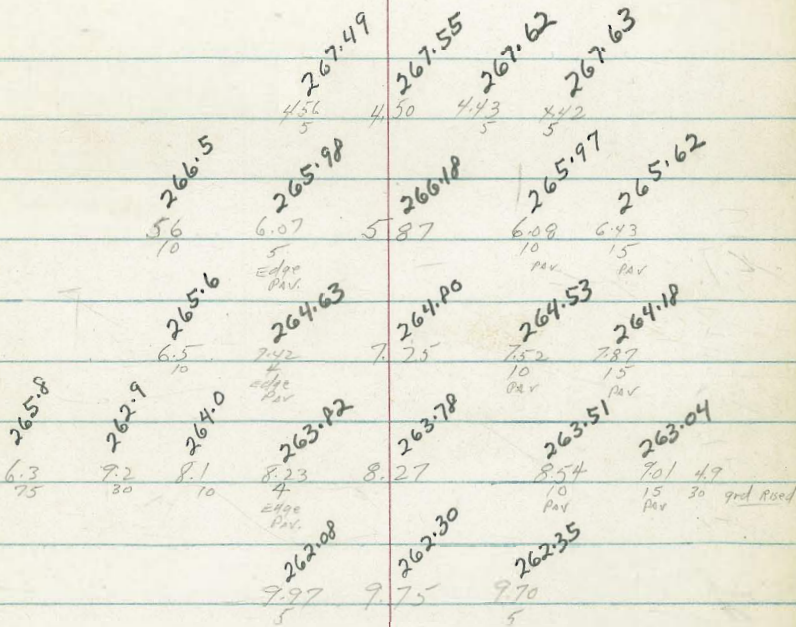 267.49 267.55 267.62 267.63
4.56 4.50 4.43 4.42
5 5 5
266.5 265.98 266.18 265.97 265.62
5.6 6.07 5.87 6.08 6.43
10 5 10 15
Edge PAV PAV
PAV.
265.6 264.63 264.80 264.53 264.18
6.5 7.42 7.25 7.52 7.87
10 4 10 15
edge PAV PAV
PAV
265.8 262.9 264.0 263.82 263.78 263.51 263.04
6.3 9.2 8.1 8.23 8.27 8.54 9.01 4.9
75 30 10 4 10 15 30 grd Rised
Edge PAV PAV
PAV.
262.08 262.30 262.35
9.97 9.75 9.70
5 5